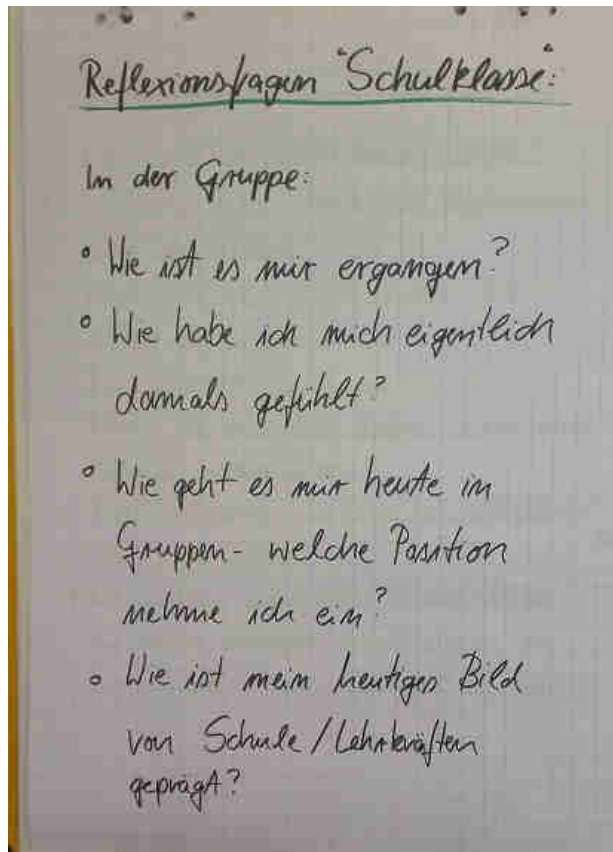 Reflexionsfragen "Schulklasse":
In der Gruppe:
° Wie ist es mir ergangen?
° Wie habe ich mich eigentlich
damals gefühlt?
° Wie geht es mir heute in
Gruppen - welche Position
nehme ich ein?
° Wie ist mein heutiges Bild
von Schule/Lehrkräften
geprägt?